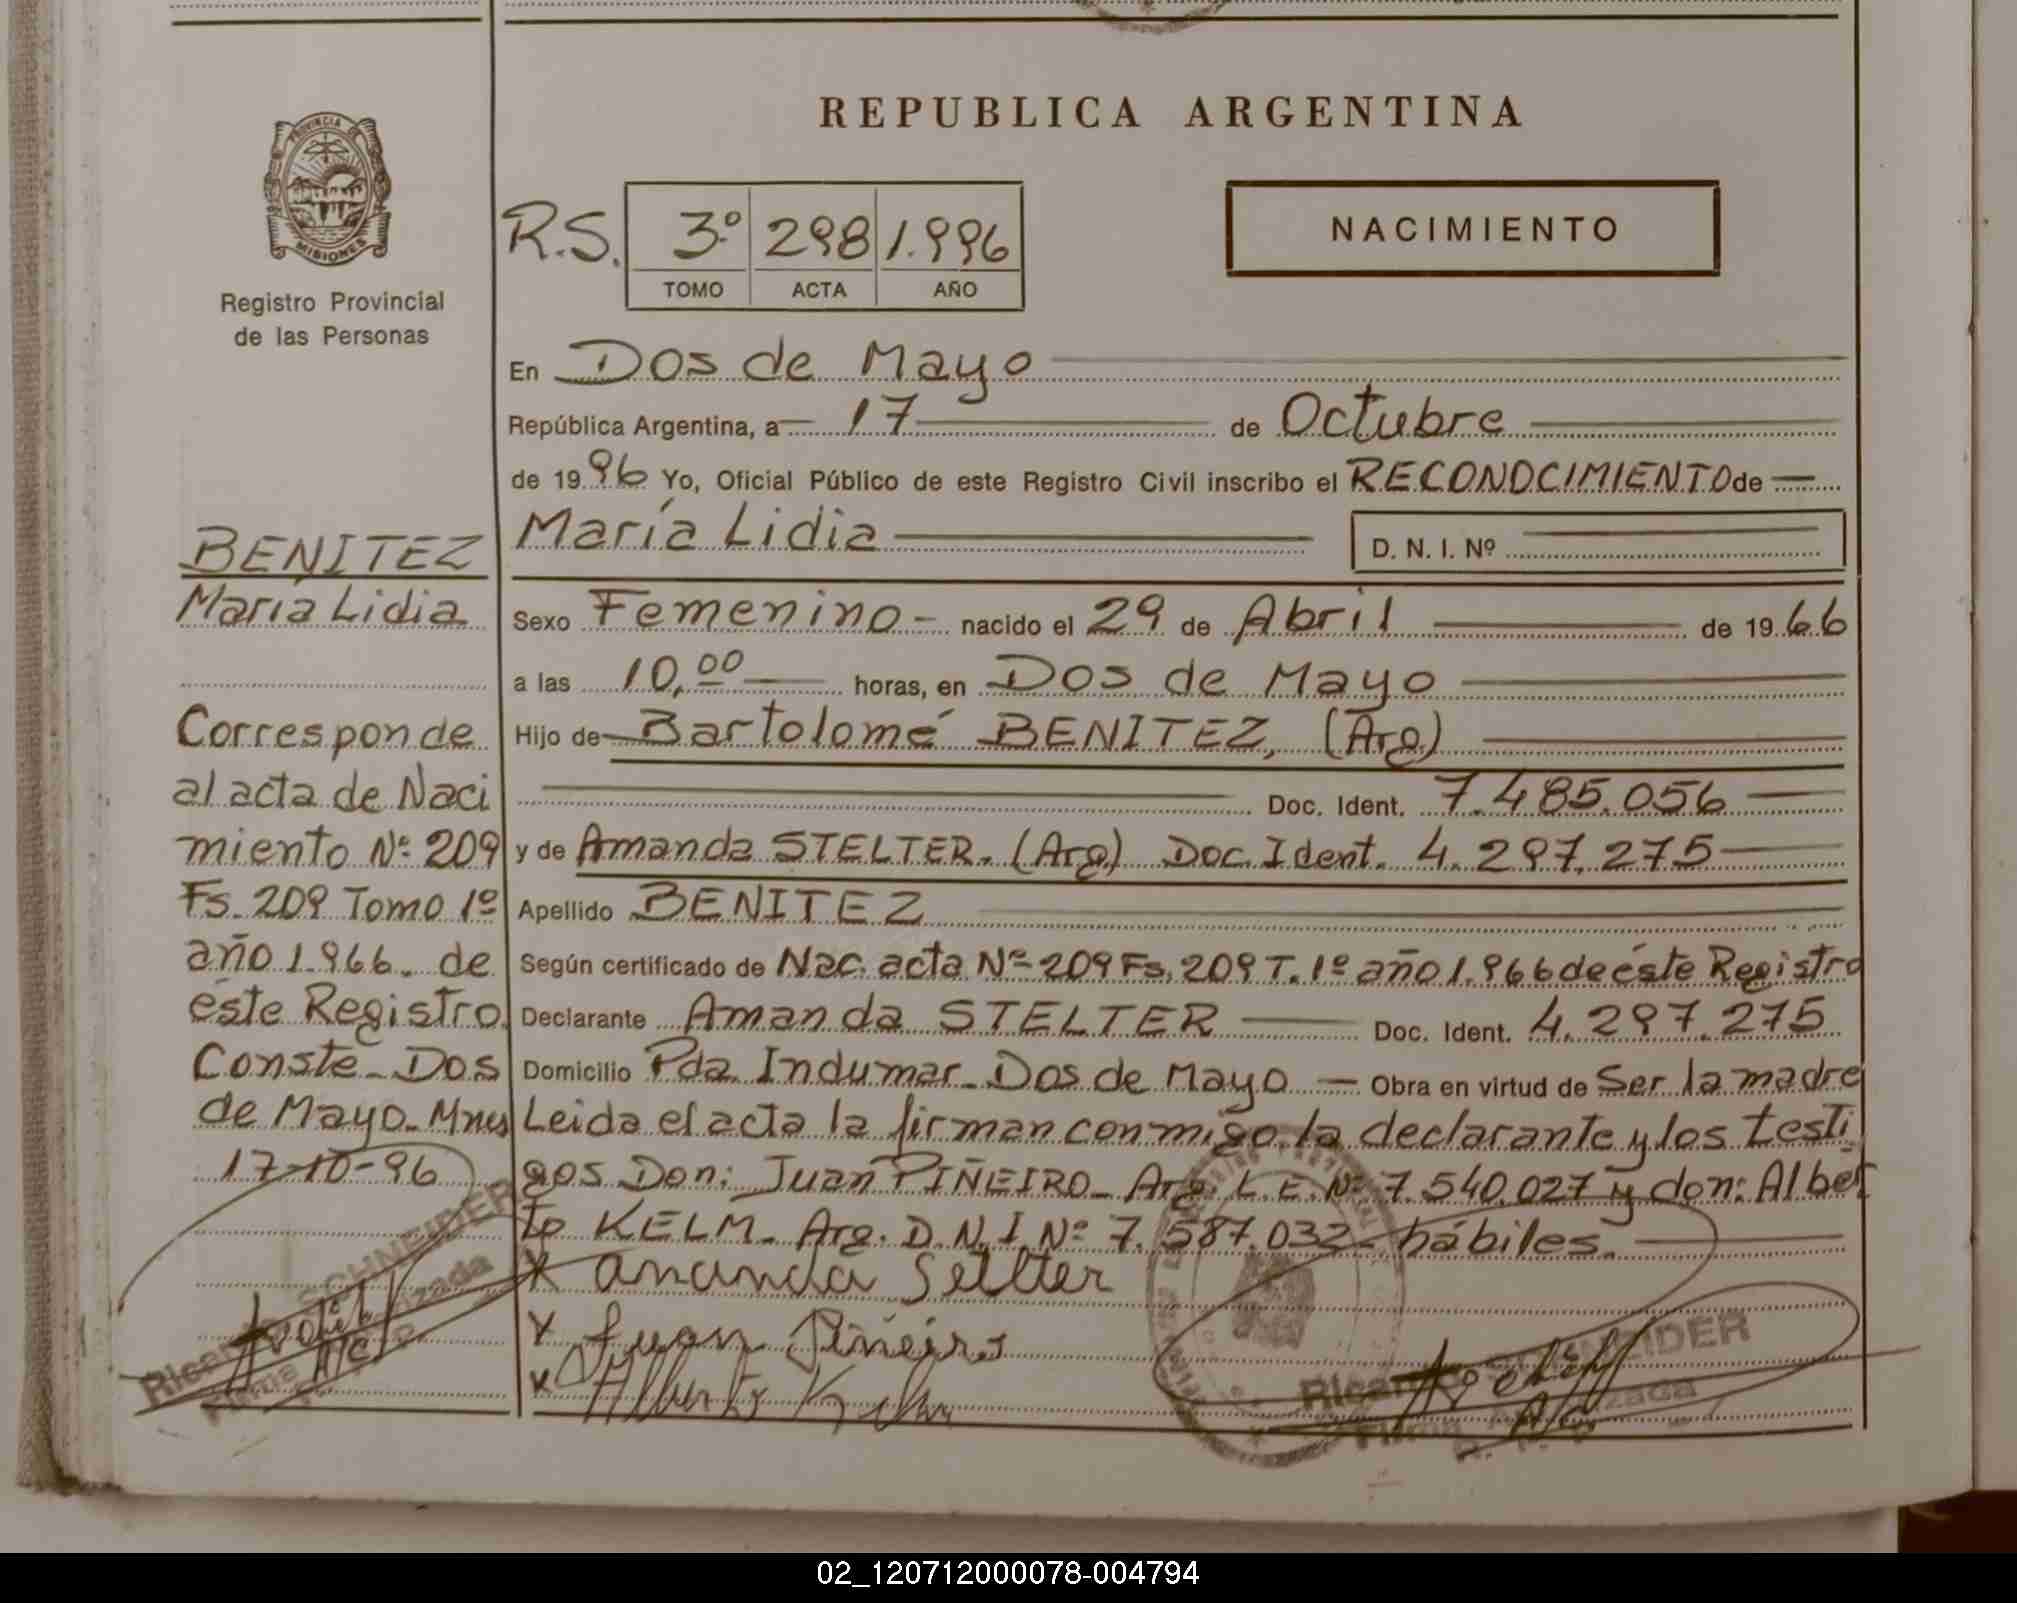 REPUBLICA ARGENTINA
PROVINCIA DE
MISIONES
Registro Provincial
de las Personas
NACIMIENTO
R.S. 3º 298 1.996
TOMO ACTA AÑO
En Dos de Mayo
República Argentina, a 17 de Octubre
de 1996 Yo, Oficial Público de este Registro Civil inscribo el RECONOCIMIENTO de
María Lidia D. N. I. Nº
Sexo Femenino nacido el 29 de Abril de 1966
a las 10,00 horas, en Dos de Mayo
Hijo de Bartolomé BENITEZ, (Arg)
Doc. Ident. 7.485.056
y de Amanda STELTER. (Arg) Doc Ident. 4.297.275
Apellido BENITEZ
Según certificado de Nac. acta Nº 209 Fs. 209 T. 1º año 1.966 de éste Registro
Declarante Amanda STELTER Doc. Ident. 4.297.275
Domicilio Pda Indumar_ Dos de Mayo Obra en virtud de Ser la madre
Leida el acta la firman conmigo la declarante y los testi
gos Don: Juan PIÑEIRO_ Arg. L.E. Nº 7.540.027 y don: Alber
to KELM_ Arg. D.N.I Nº 7.587.032_ hábiles.
x Amanda Seltter
x Juan Piñeiro
x Alberto Kelm
Ricardo SCHNEIDER
Firma Autorizada
BENITEZ
María Lidia
Corresponde
al acta de Naci
miento Nº 209
Fs. 209 Tomo 1º
año 1.966. de
éste Registro.
Conste_ Dos
de Mayo_ Mnes
17-10-96
Ricardo SCHNEIDER
Firma Autorizada
02_120712000078-004794